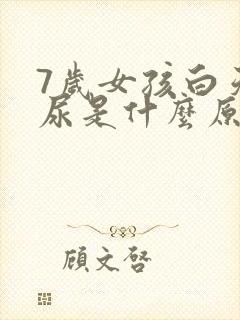 7歲女孩白天
尿是什麼原
顧文啓